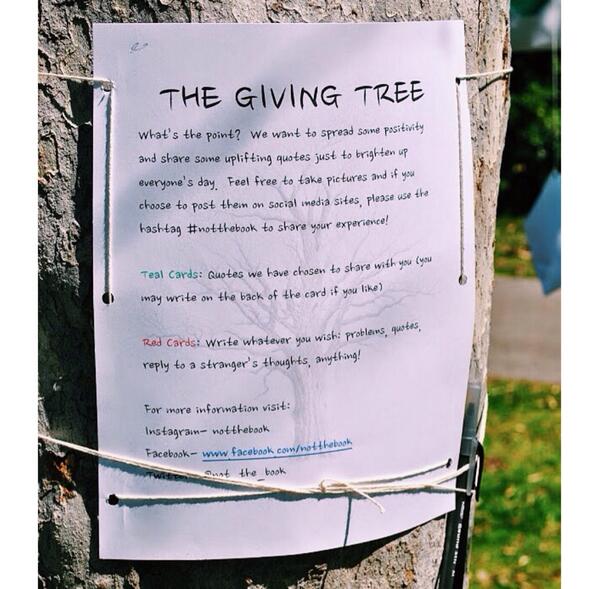 THE GIVING TREE
What's the point? We want to spread some positivity
and share some uplifting quotes just to brighten up
everyone's day. Feel free to take pictures and if you
choose to post them on social media sites, please use the
hashtag #notthebook to share your experience!
Teal Cards: Quotes we have chosen to share with you (you
may write on the back of the card if you like)
Red Cards: Write whatever you wish: problems, quotes,
reply to a stranger's thoughts, anything!
For more information visit:
Instagram- notthebook
Facebook- www.facebook.com/notthebook
@not_the_book